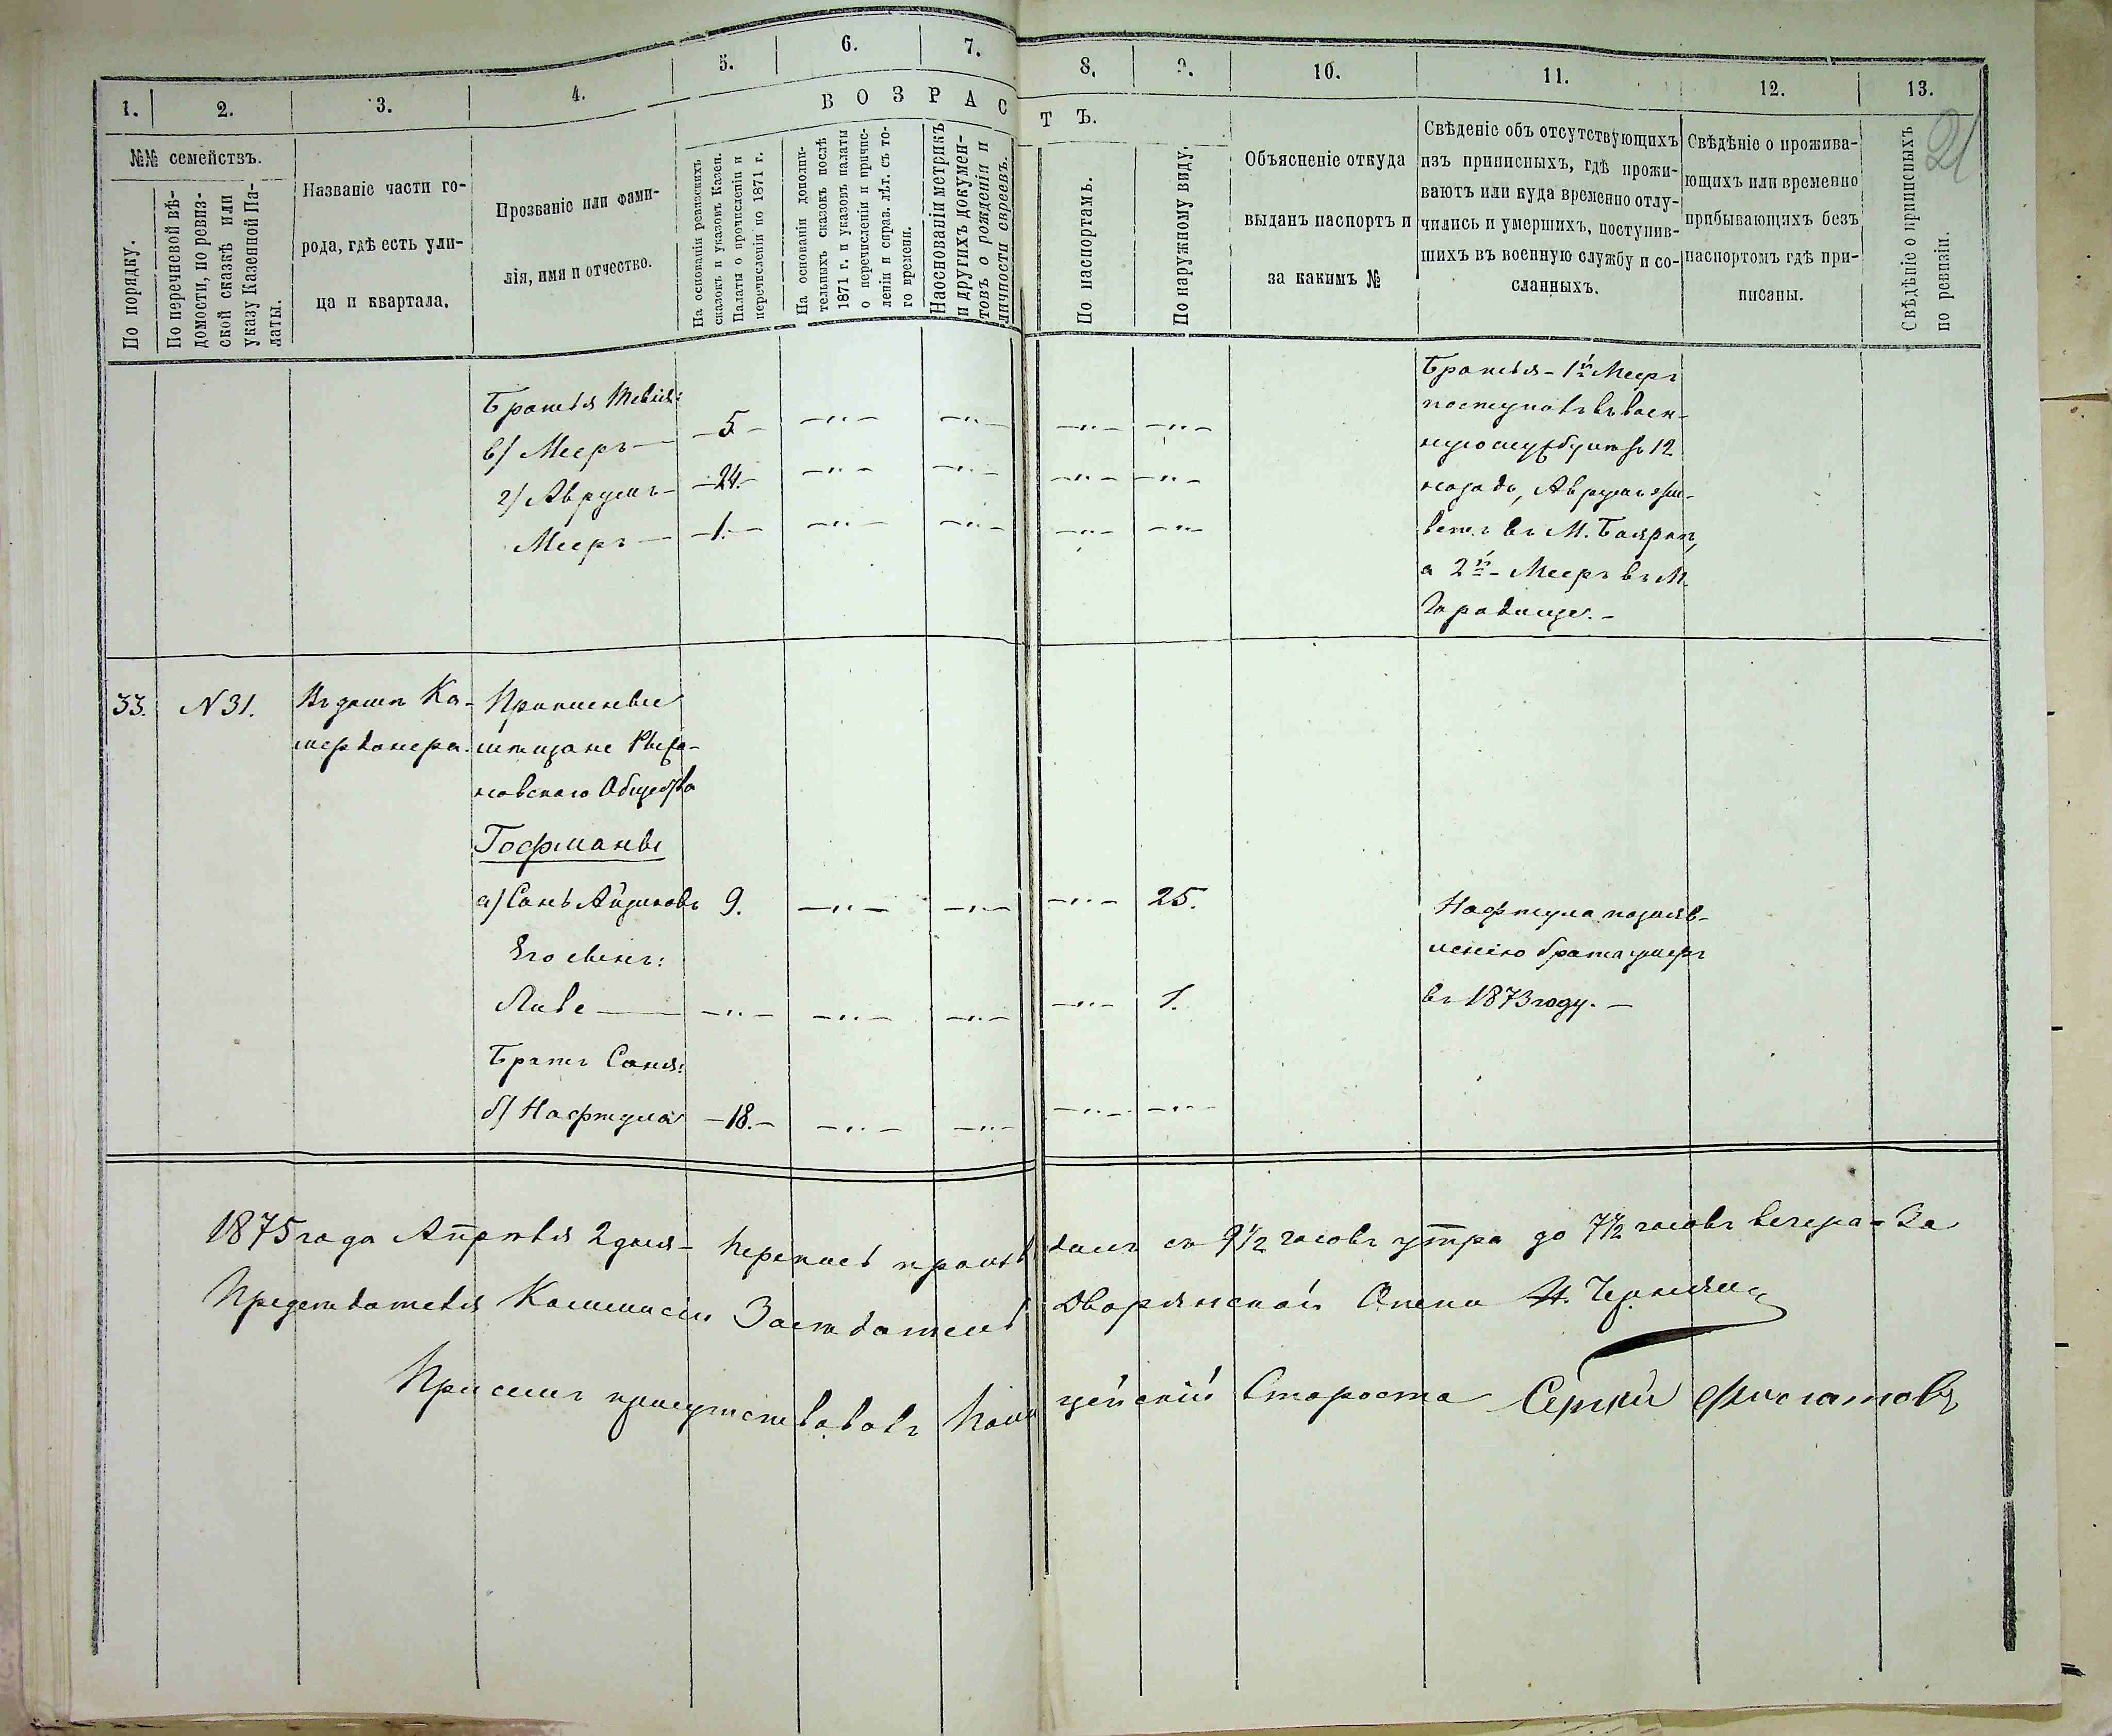 1.
2.
3.
4.
5.
6.
7.
8.
9.
10.
11.
12.
13.
21
№№ семействъ.
По порядку.
По перечневой вѣ-
домости, по ревиз-
ской сказкѣ или
указу Казенной Па-
латы.
Названіе части го-
рода, гдѣ есть ули-
ца и квартала.
Прозваніе или фами-
лія, имя и отчество.
ВОЗРАСТЪ.
На основаніи ревизскихъ
сказокъ и указокъ Казен.
Палаты о причисленіи и
перечисленіи по 1871 г.
На основаніи дополни-
тельныхъ сказокъ послѣ
1871 г. и указовъ палаты
о перечисленіи и причис-
леніи и справ. лѣт. съ то-
го времени.
На основаніи метрикъ
и другихъ докумен-
товъ о рожденіи и
личности евреевъ.
По паспортамъ.
По наружному виду.
Объясненіе откуда
выданъ паспортъ и
за какимъ №
Свѣденіе объ отсутствующихъ
изъ приписныхъ, гдѣ прожи-
ваютъ или куда временно отлу-
чились и умершихъ, поступив-
шихъ въ военную службу и со-
сланныхъ.
Свѣдѣніе о прожива-
ющихъ или временно
прибывающихъ безъ
паспортомъ гдѣ при-
писаны.
Свѣдѣніе о приписныхъ
по ревизіи.
Братья Тевія:
в) Мееръ — 5 — — „ — — „ — — „ — — „ —
г) Аврумъ — 24. — — „ — — „ — — „ — — „ —
Мееръ — 1. — — „ — — „ — — „ — — „ —
Братья - 1й Мееръ
поступилъ въ воен-
ную службу лѣтъ 12
назадъ, Аврумъ жи-
ветъ въ М.
а 2й - Мееръ въ М.
Городище. -
33. N 31. Въ домѣ Ка-
мердинера.
Приписные
мѣщане Рыжа-
новскаго Общества
Гофманы
а) Сань Айзиковъ 9. — „ — — „ — — „ — 25.
Его сынъ:
Ливе — — „ — — „ — — „ — — „ — 1.
Братъ Саня:
б) Нафтула — 18. — — „ — — „ — — „ — — „ —
Нафтула по заяв-
ленію брата умеръ
въ 1873 году. —
1875 года Апрѣля 2 дня - перепись произведена съ 9 1/2 часовъ утра до 7 1/2 часовъ вечера - За
Предсѣдателя Коммисіи Засѣдатель Дворянской Опеки
При семъ присутствовалъ Полицейскій Староста Сергѣй